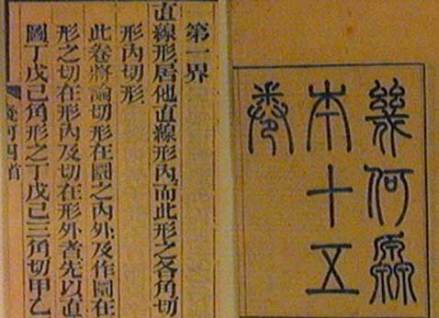 幾何原
本十五
卷
第一界
直線形居他直線形內而此形之各角切
形內切形
此卷將論切形在圜之內外及作圜在
形之切在形內及切在形外者先以直
圖丁戊己角形之丁戊己三角切甲乙
卷四首